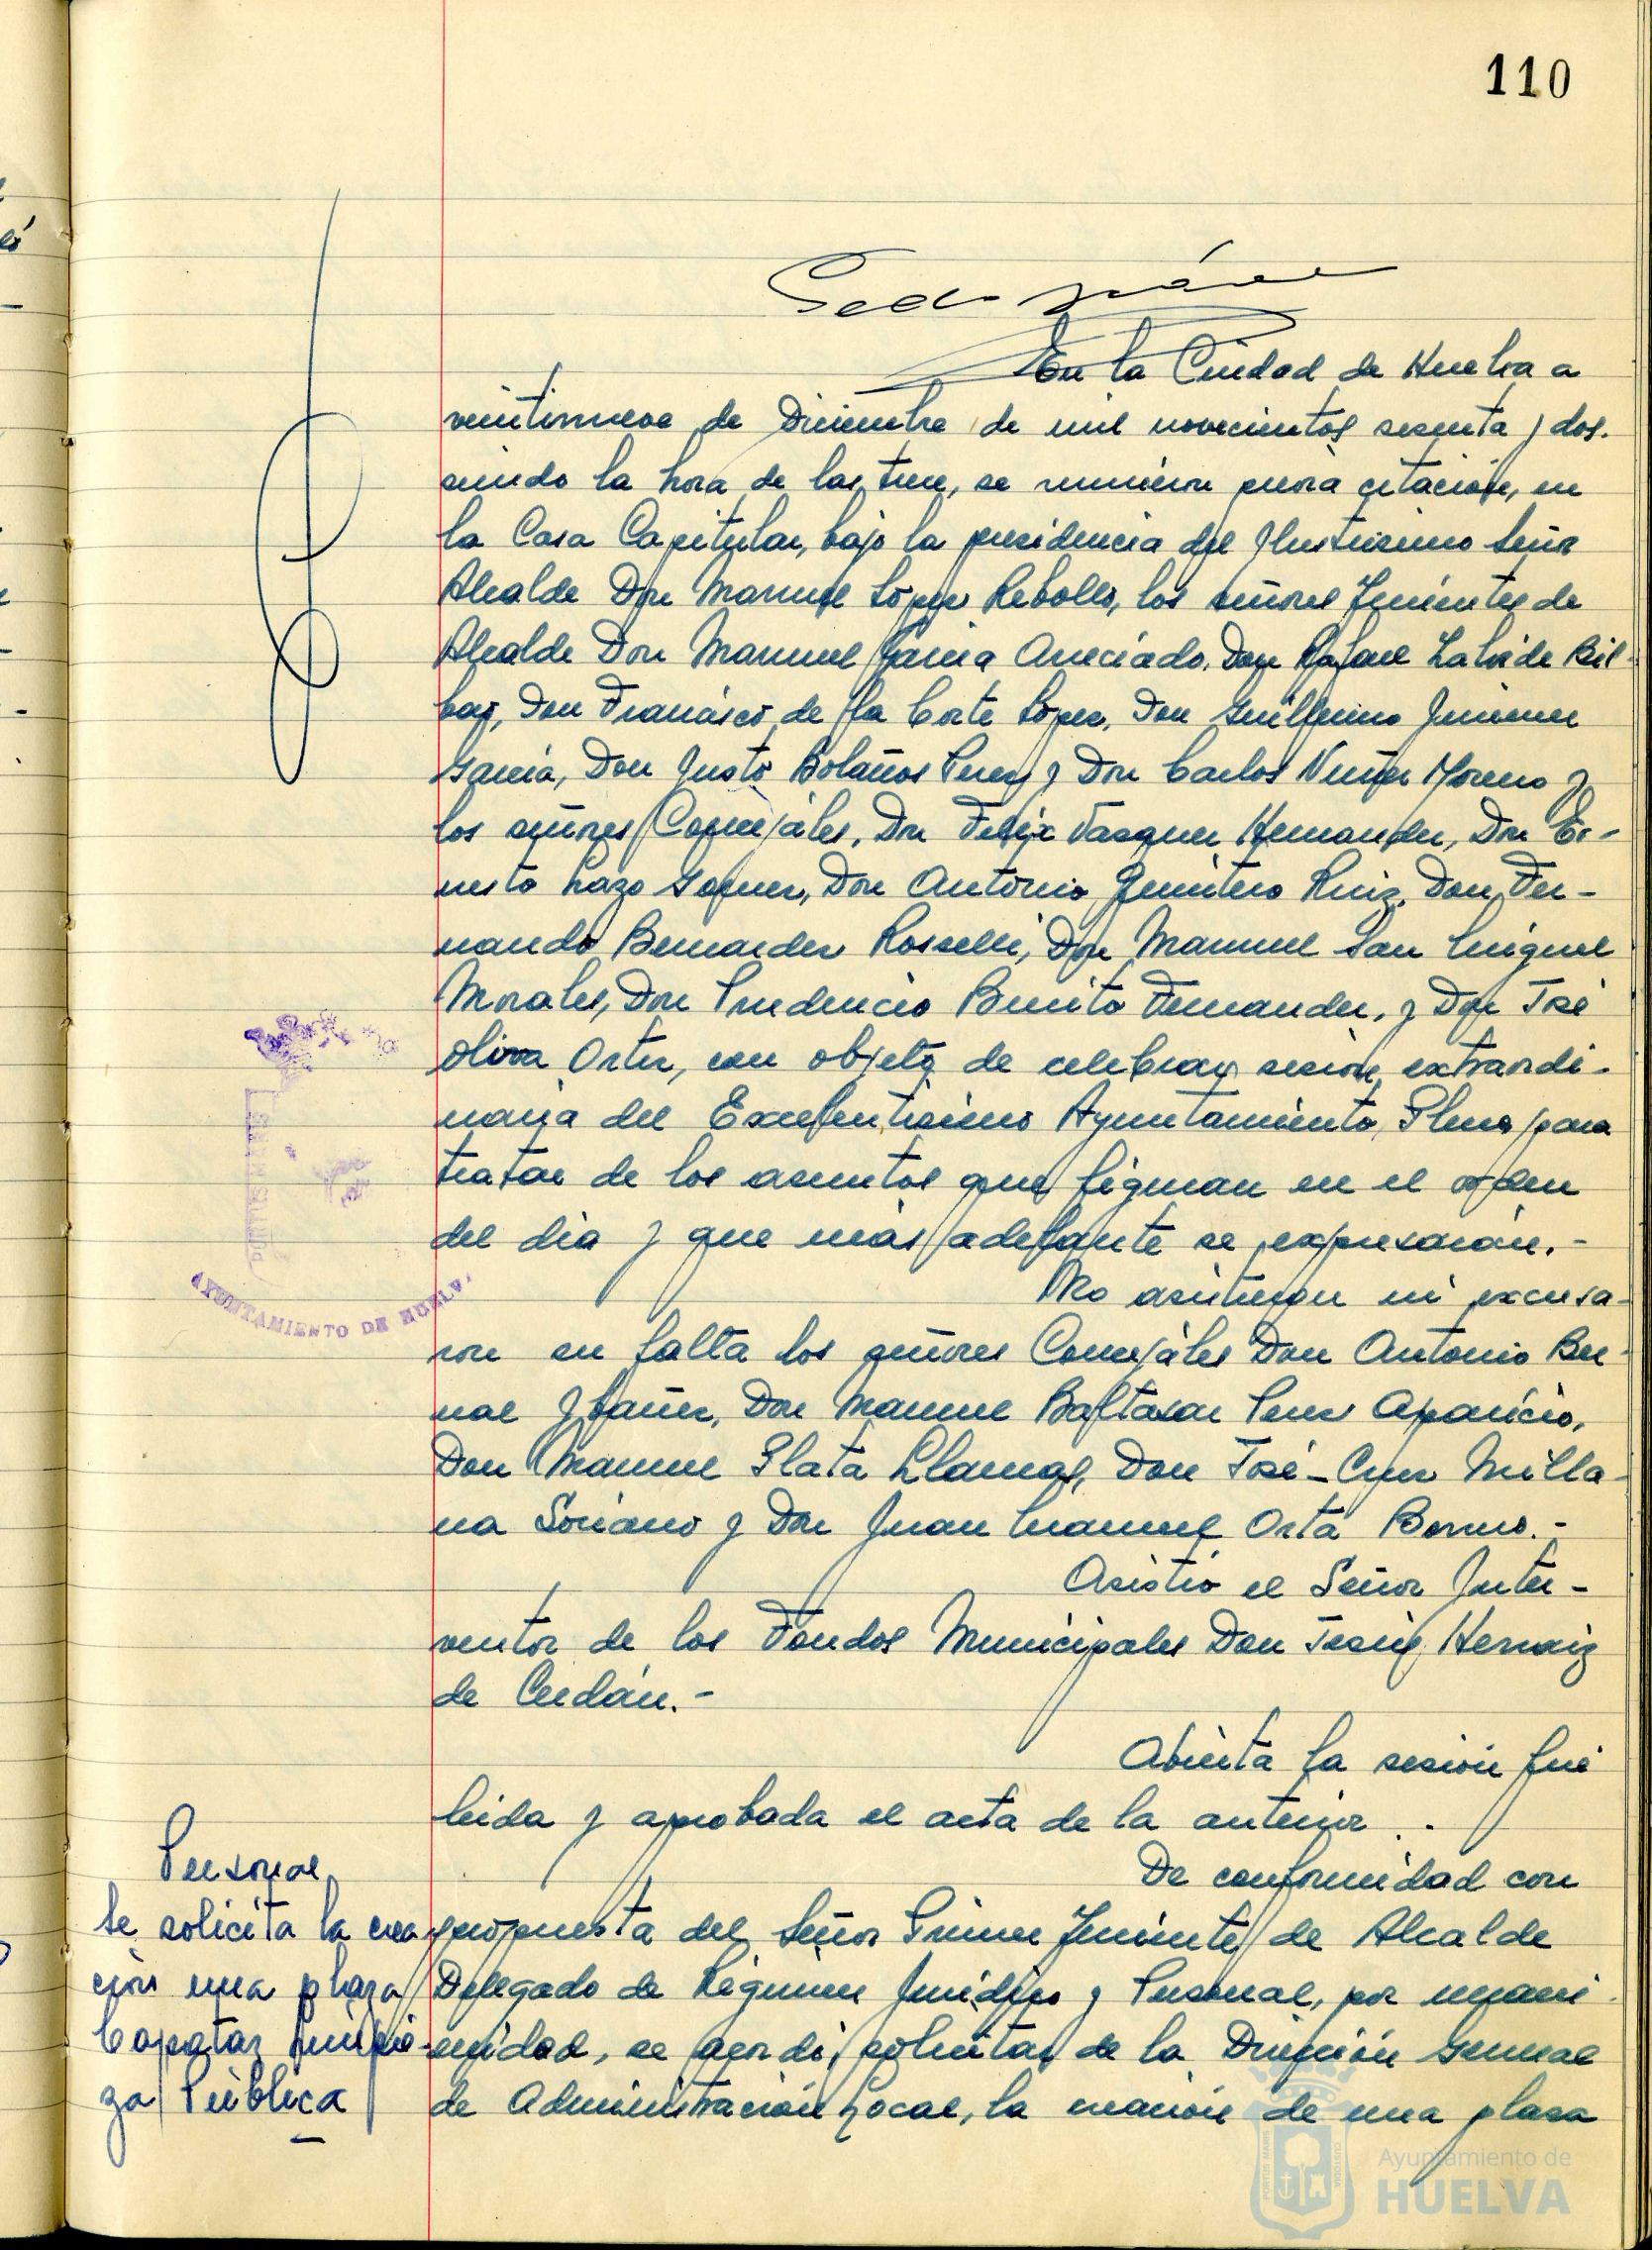 110
En la Ciudad de Huelva a
veintinueve de Diciembre de mil novecientos sesenta y dos.
siendo la hora de las trece, se reunieron previa citación, en
la Casa Capitular, bajo la presidencia del Ilustrisimo Señor
Alcalde Don Manuel López Rebollo, los señores Tenientes de
Alcalde Don Manuel Garcia Aneciado, Don Rafael Lalvide Bil-
bao, Don Francisco de la Corte López, Don Guillermo Jimenez
Garcia, Don Justo Bolaños Perez y Don Carlos Nuñez Moreno y
los señores Concejales, Don Felix Vazquez Hernandez, Don Er-
nesto Lazo Gomez, Don Antonio Quintero Ruiz, Don Fer-
nando Bernardez Rosselli, Don Manuel San Miguel
Morales, Don Prudencio Benito Fernandez, y Don José
Oliva Ortiz, con objeto de celebrar sesión extraordi-
naria del Excelentisimo Ayuntamiento Pleno para
tratar de los asuntos que figuran en el orden
del dia y que más adelante se expresarán.-
No asistieron ni excusa-
ron su falta los señores Concejales Don Antonio Ber-
nal Ybañez, Don Manuel Baltasar Perez Aparicio,
Don Manuel Plata Llamas, Don José-Cruz Milla-
na Soriano y Don Juan Manuel Orta Borrero.-
Asistió el Señor Inter-
ventor de los Fondos Municipales Don Jesus Hernaiz
de Cerdán.-
Abierta la sesión fué
leida y aprobada el acta de la anterior.-
Personal
Se solicita la crea
ción una plaza
Capataz Limpie-
za Pública
De conformidad con
propuesta del Señor Primer Teniente de Alcalde
Delegado de Régimen Juridico y Personal, por unani-
midad, se acordó, solicitar de la Dirección General
de Administración Local, la creación de una plaza
AYUNTAMIENTO DE HUELVA
Ayuntamiento de
HUELVA